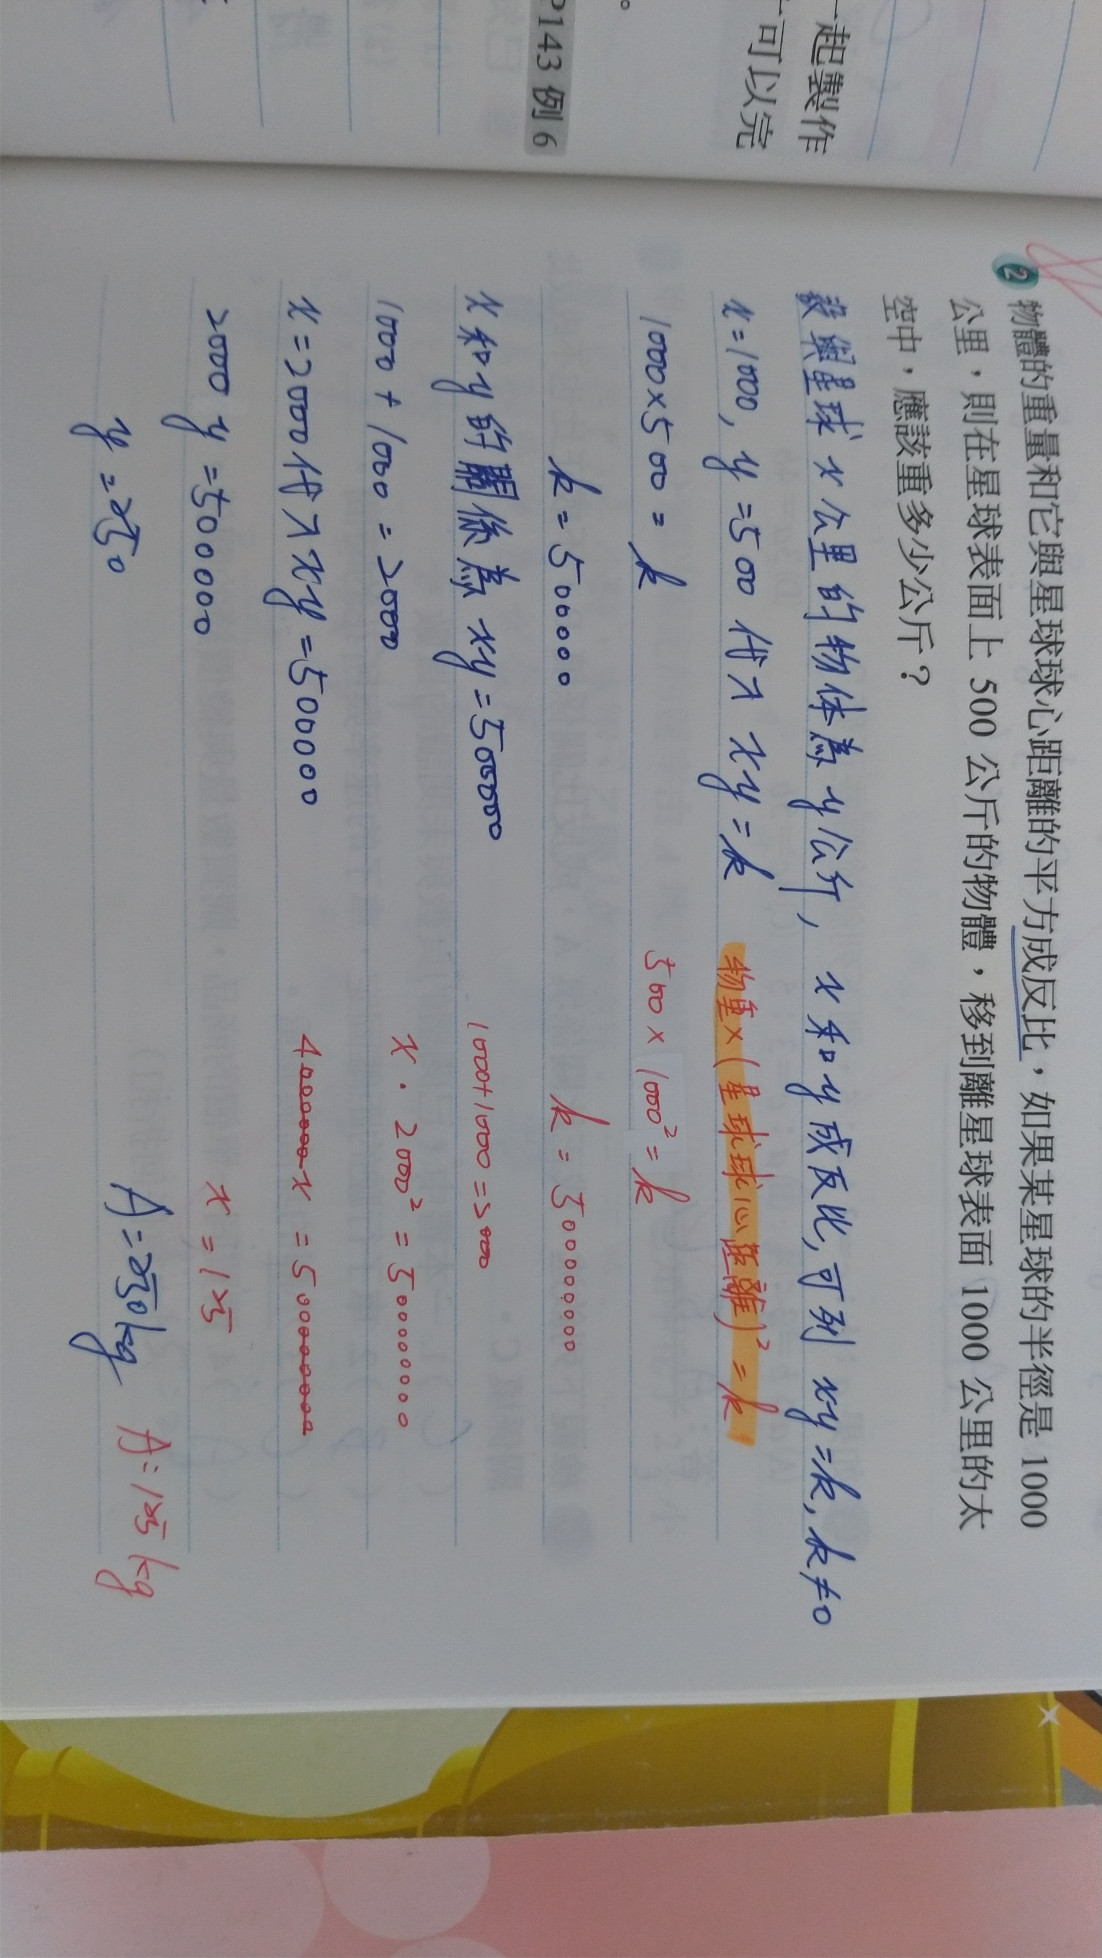 一起製作
可以完
。
P143 例 6
2 物體的重量和它與星球球心距離的平方成反比，如果某星球的半徑是 1000
公里，則在星球表面上 500 公斤的物體，移到離星球表面 1000 公里的太
空中，應該重多少公斤？
設與星球 x 公里的物体為 y 公斤， x 和 y 成反比，可列 xy=k, k≠0
x=1000, y=500 代入 xy=k
1000×500=k
k=500000
x和y的關係為 xy=500000
1000+1000=2000
x=2000代入xy=500000
2000y=500000
y=250
A=250kg
物重×(星球球心距離)²=k
500×1000²=k
k=500000000
1000+1000=2000
x·2000²=500000000
4000000x=500000000
x=125
A=125kg